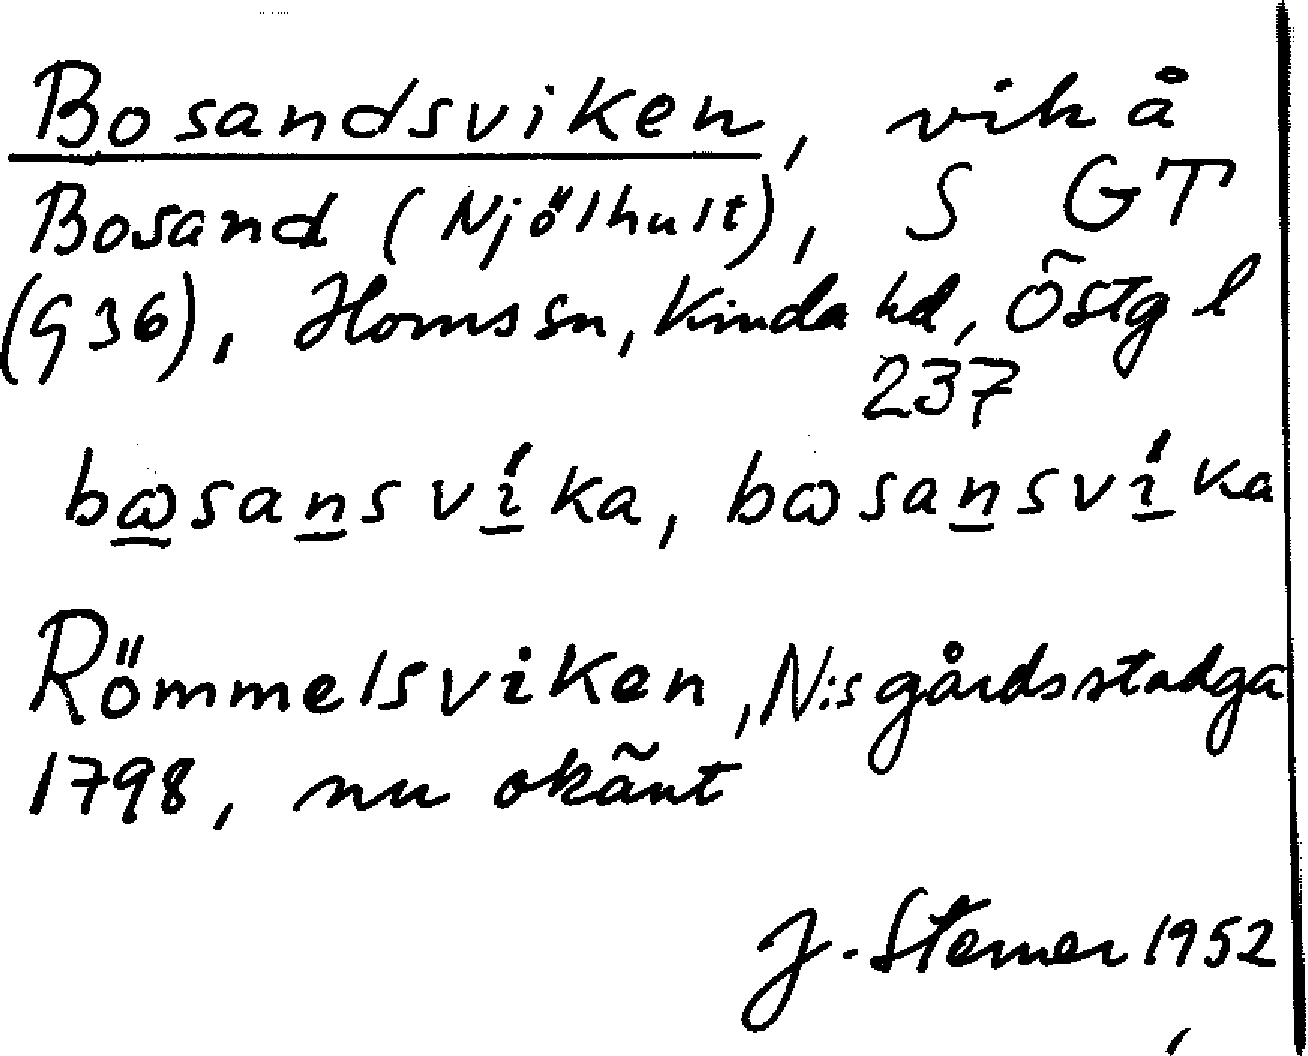 Bosandsviken, vik å
Bosand (Njölhult), S GT
(G 36), Horns sn, Kinda hd, Östg l
237
bⱺsansvíka, bⱺsansvíka
Römmelsviken, N:s gårdsstadga
1798, nu okänt
J. Sterner 1952